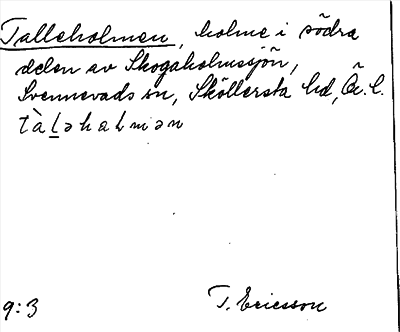 Talleholmen, holme i södra
delen av Skogaholmssjön,
Svennevads sn, Sköllersta hd, Ör. l.
tàləhaLmən
9:3 T. Ericsson